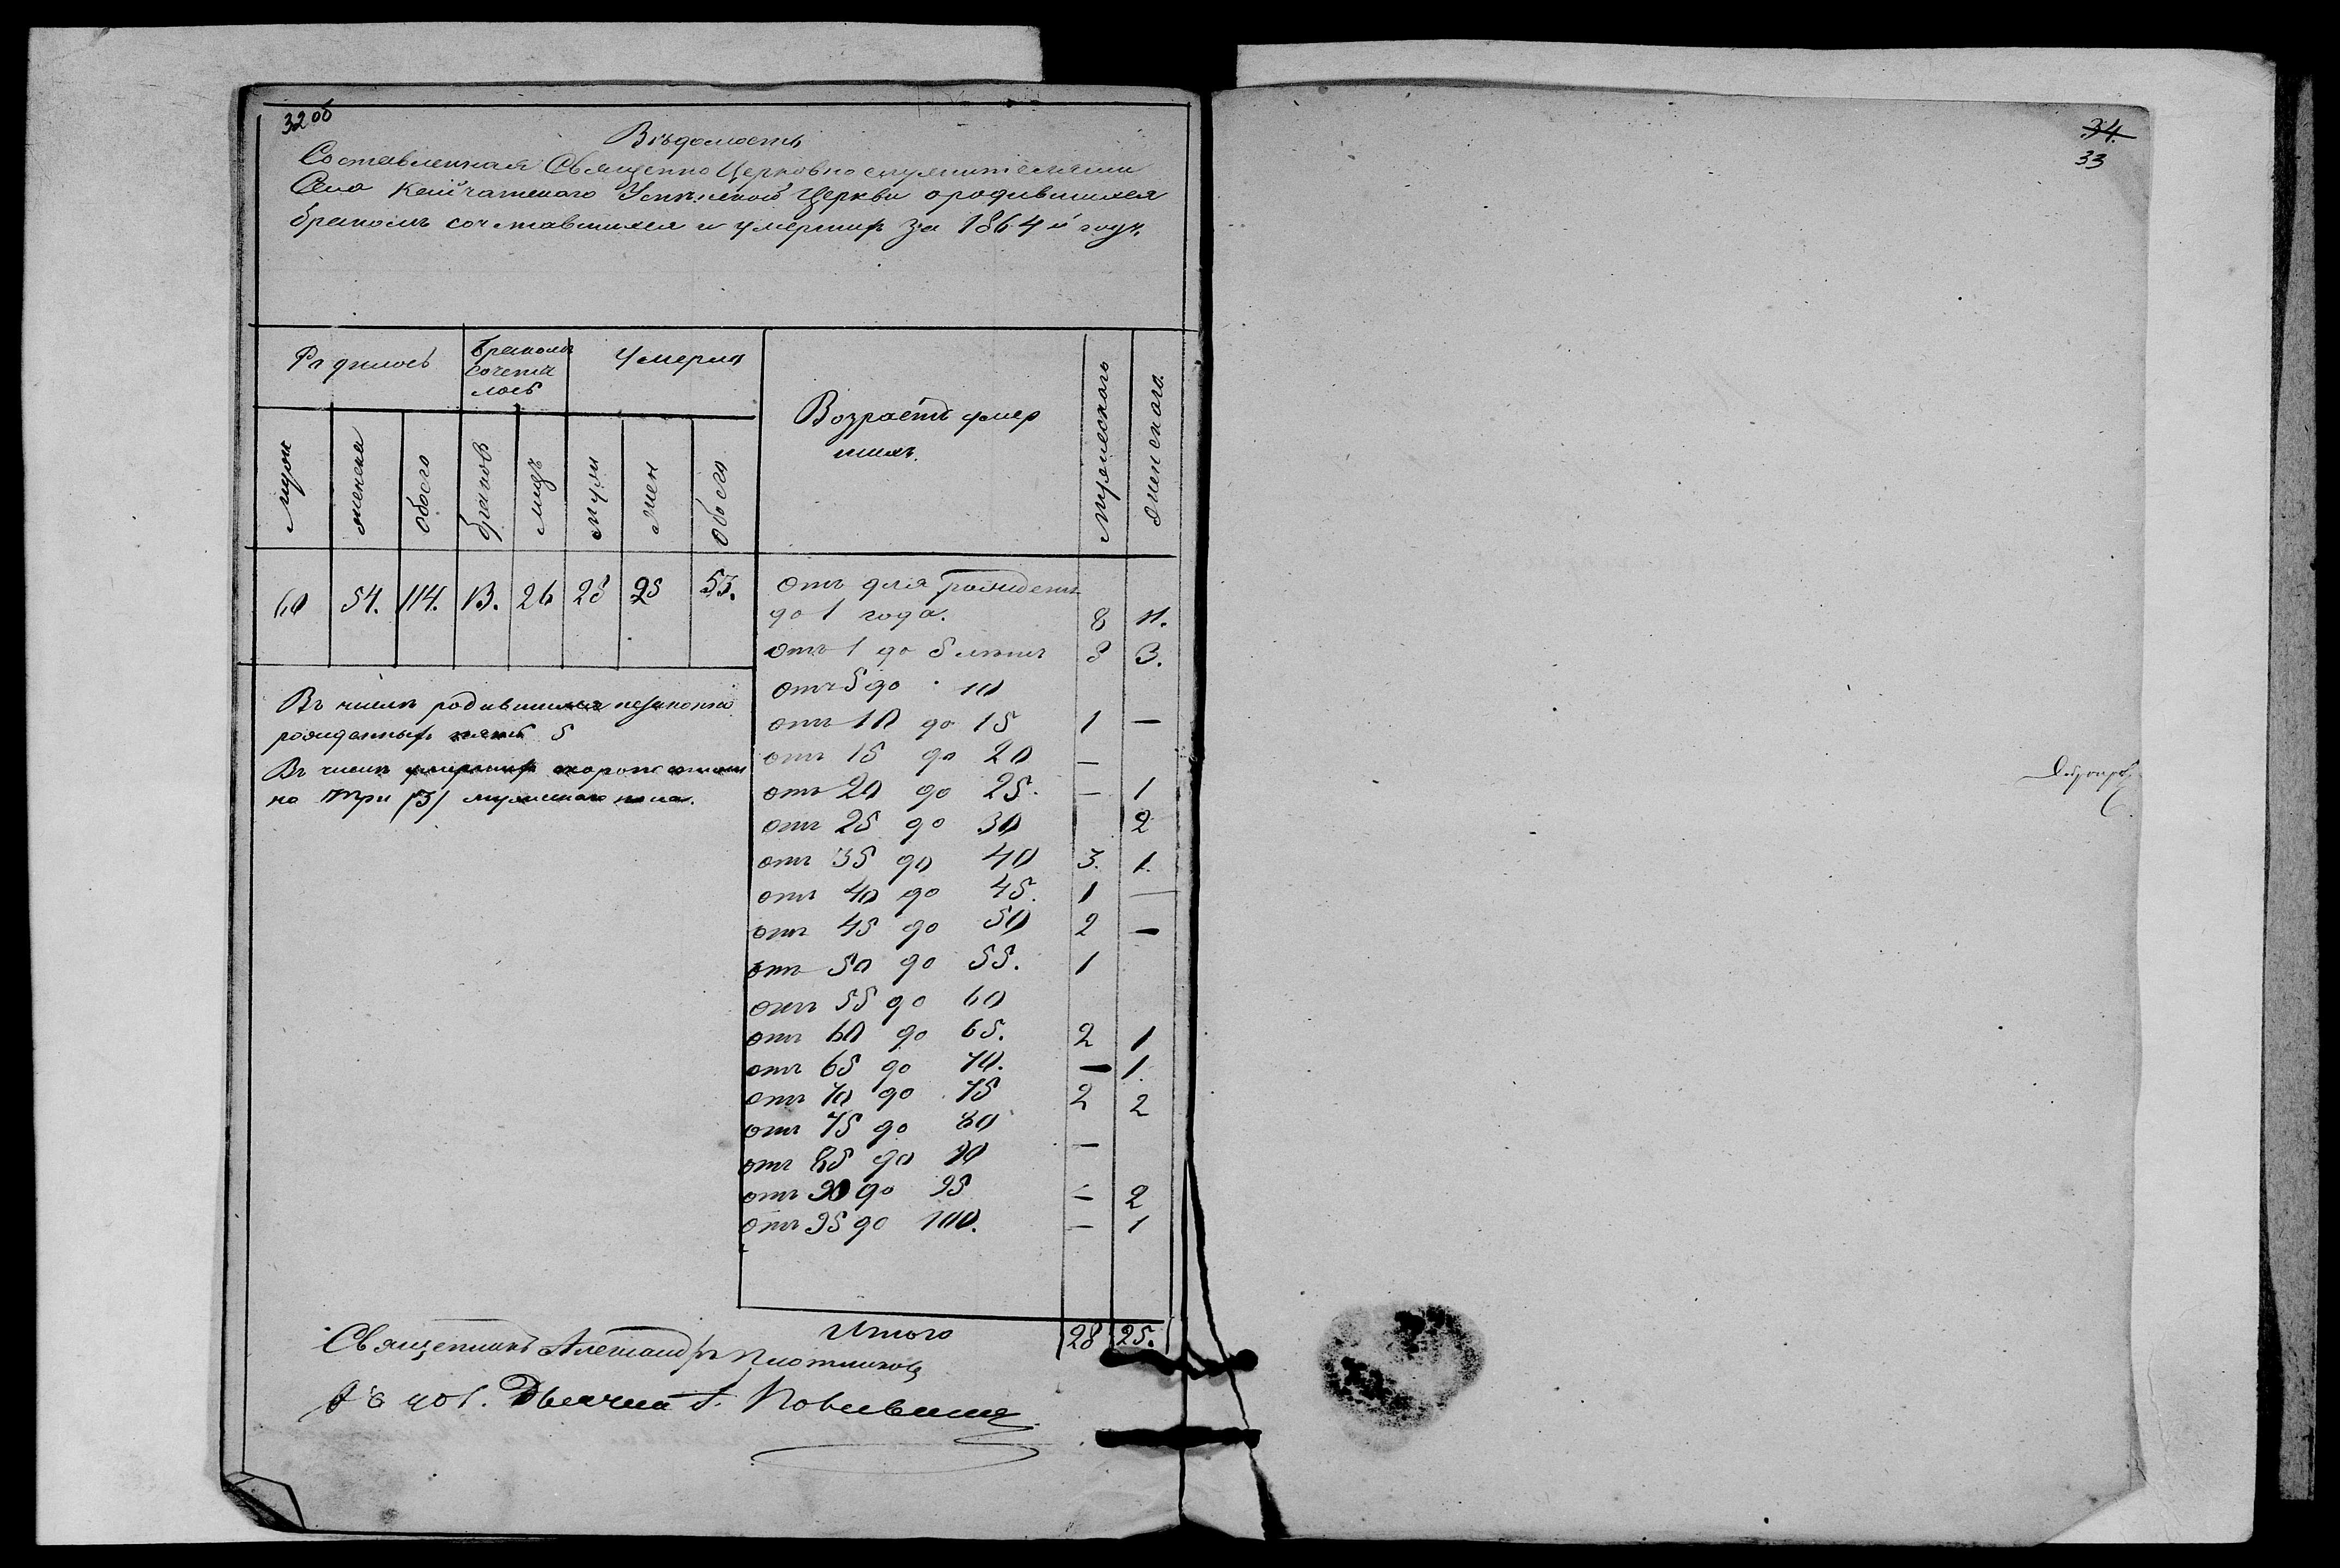 32 об
Вѣдомость
Составленная Священно Церковно служителями
Села Успенской Церкви о родившихся
бракомъ сочетавшихся и умершихъ за 1864 й годъ.
Родилось
бракомъ
сочета
лось
Умерло
Возрастъ умер
шихъ.
мужескаго
женскаго.
муж
женска
обоего
браковъ
лицъ
муж
жен
обоего
60 54. 114. 13. 26 28 25 53.
отъ дня рожденія
до 1 года. 8 11.
отъ 1 до 5 лѣтъ 8 3.
отъ 5 до 10
отъ 10 до 15 1 —
отъ 15 до 20 —
отъ 20 до 25. — 1
отъ 25 до 30 2
отъ 35 до 40 3. 1.
отъ 40 до 45. 1 —
отъ 45 до 50 2 —
отъ 50 до 55. 1
отъ 55 до 60
отъ 60 до 65. 2 1
отъ 65 до 70. — 1.
отъ 70 до 75 2 2
отъ 75 до 80
отъ 85 до 90 —
отъ 90 до 95 — 2
отъ 95 до 100. — 1
Итого 28 25.
Въ числѣ родившихся незаконно
рожденныхъ 5
Въ числѣ умершихъ
но три (3) мужескаго пола.
Священникъ Александръ Плотниковъ
Дьячка
34.
33